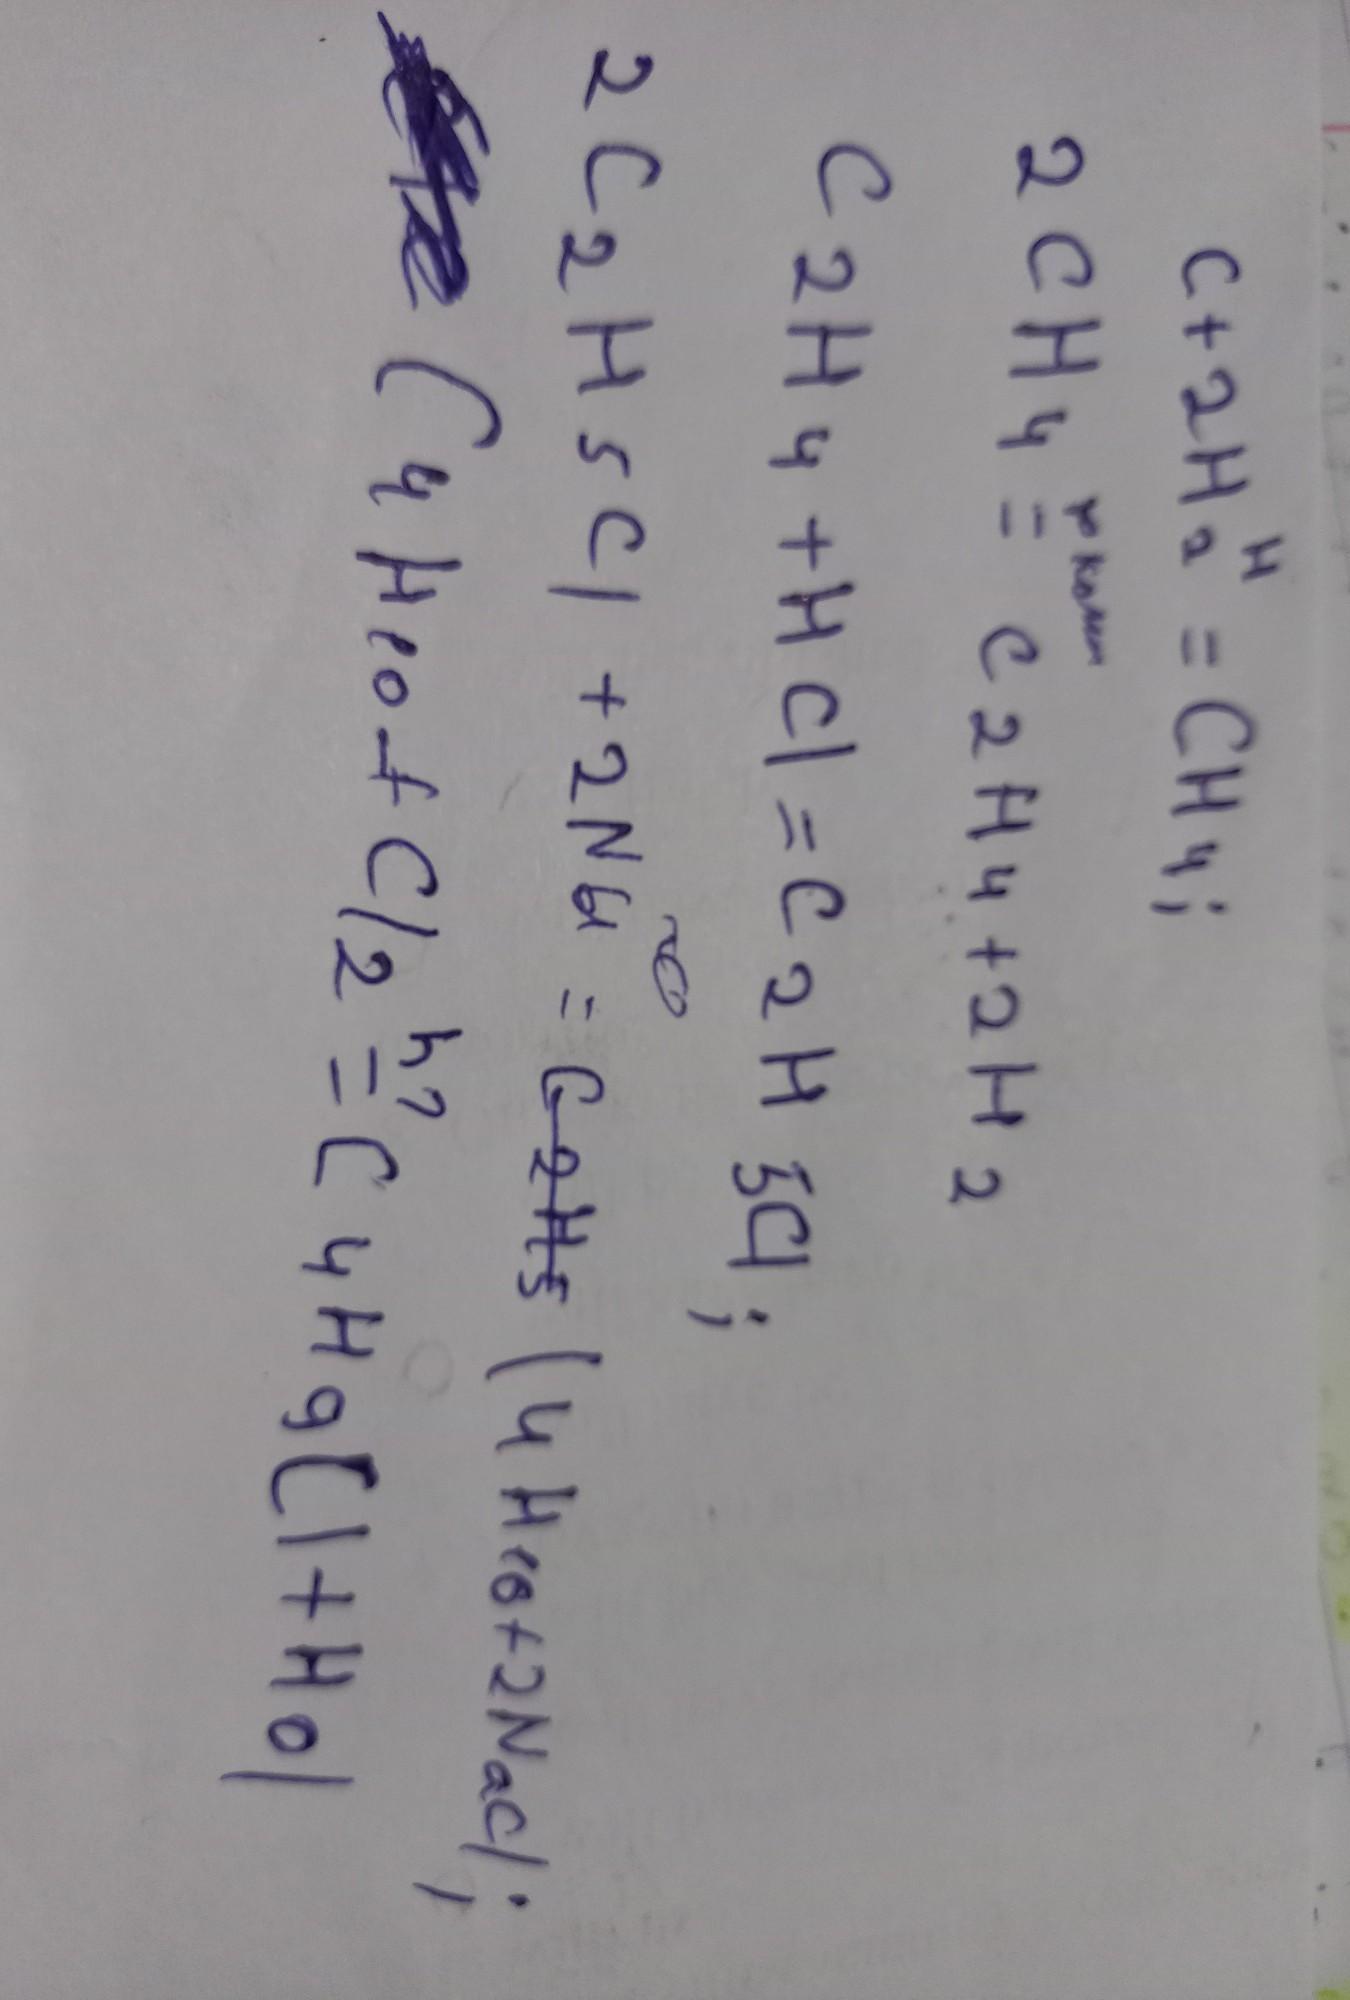 C+2H2 = CH4;
2CH4 = C2H4+2H2
C2H4+HCl=C2H5Cl;
2C2H5Cl+2Na = C4H10+2NaCl;
C4H10+Cl2 = C4H9Cl+HCl